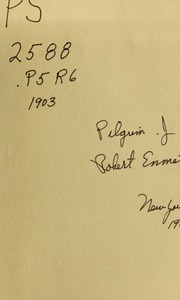 PS
2588
.P5 R6
1903
Pilgrim. J
Robert Emme
New Yor
19